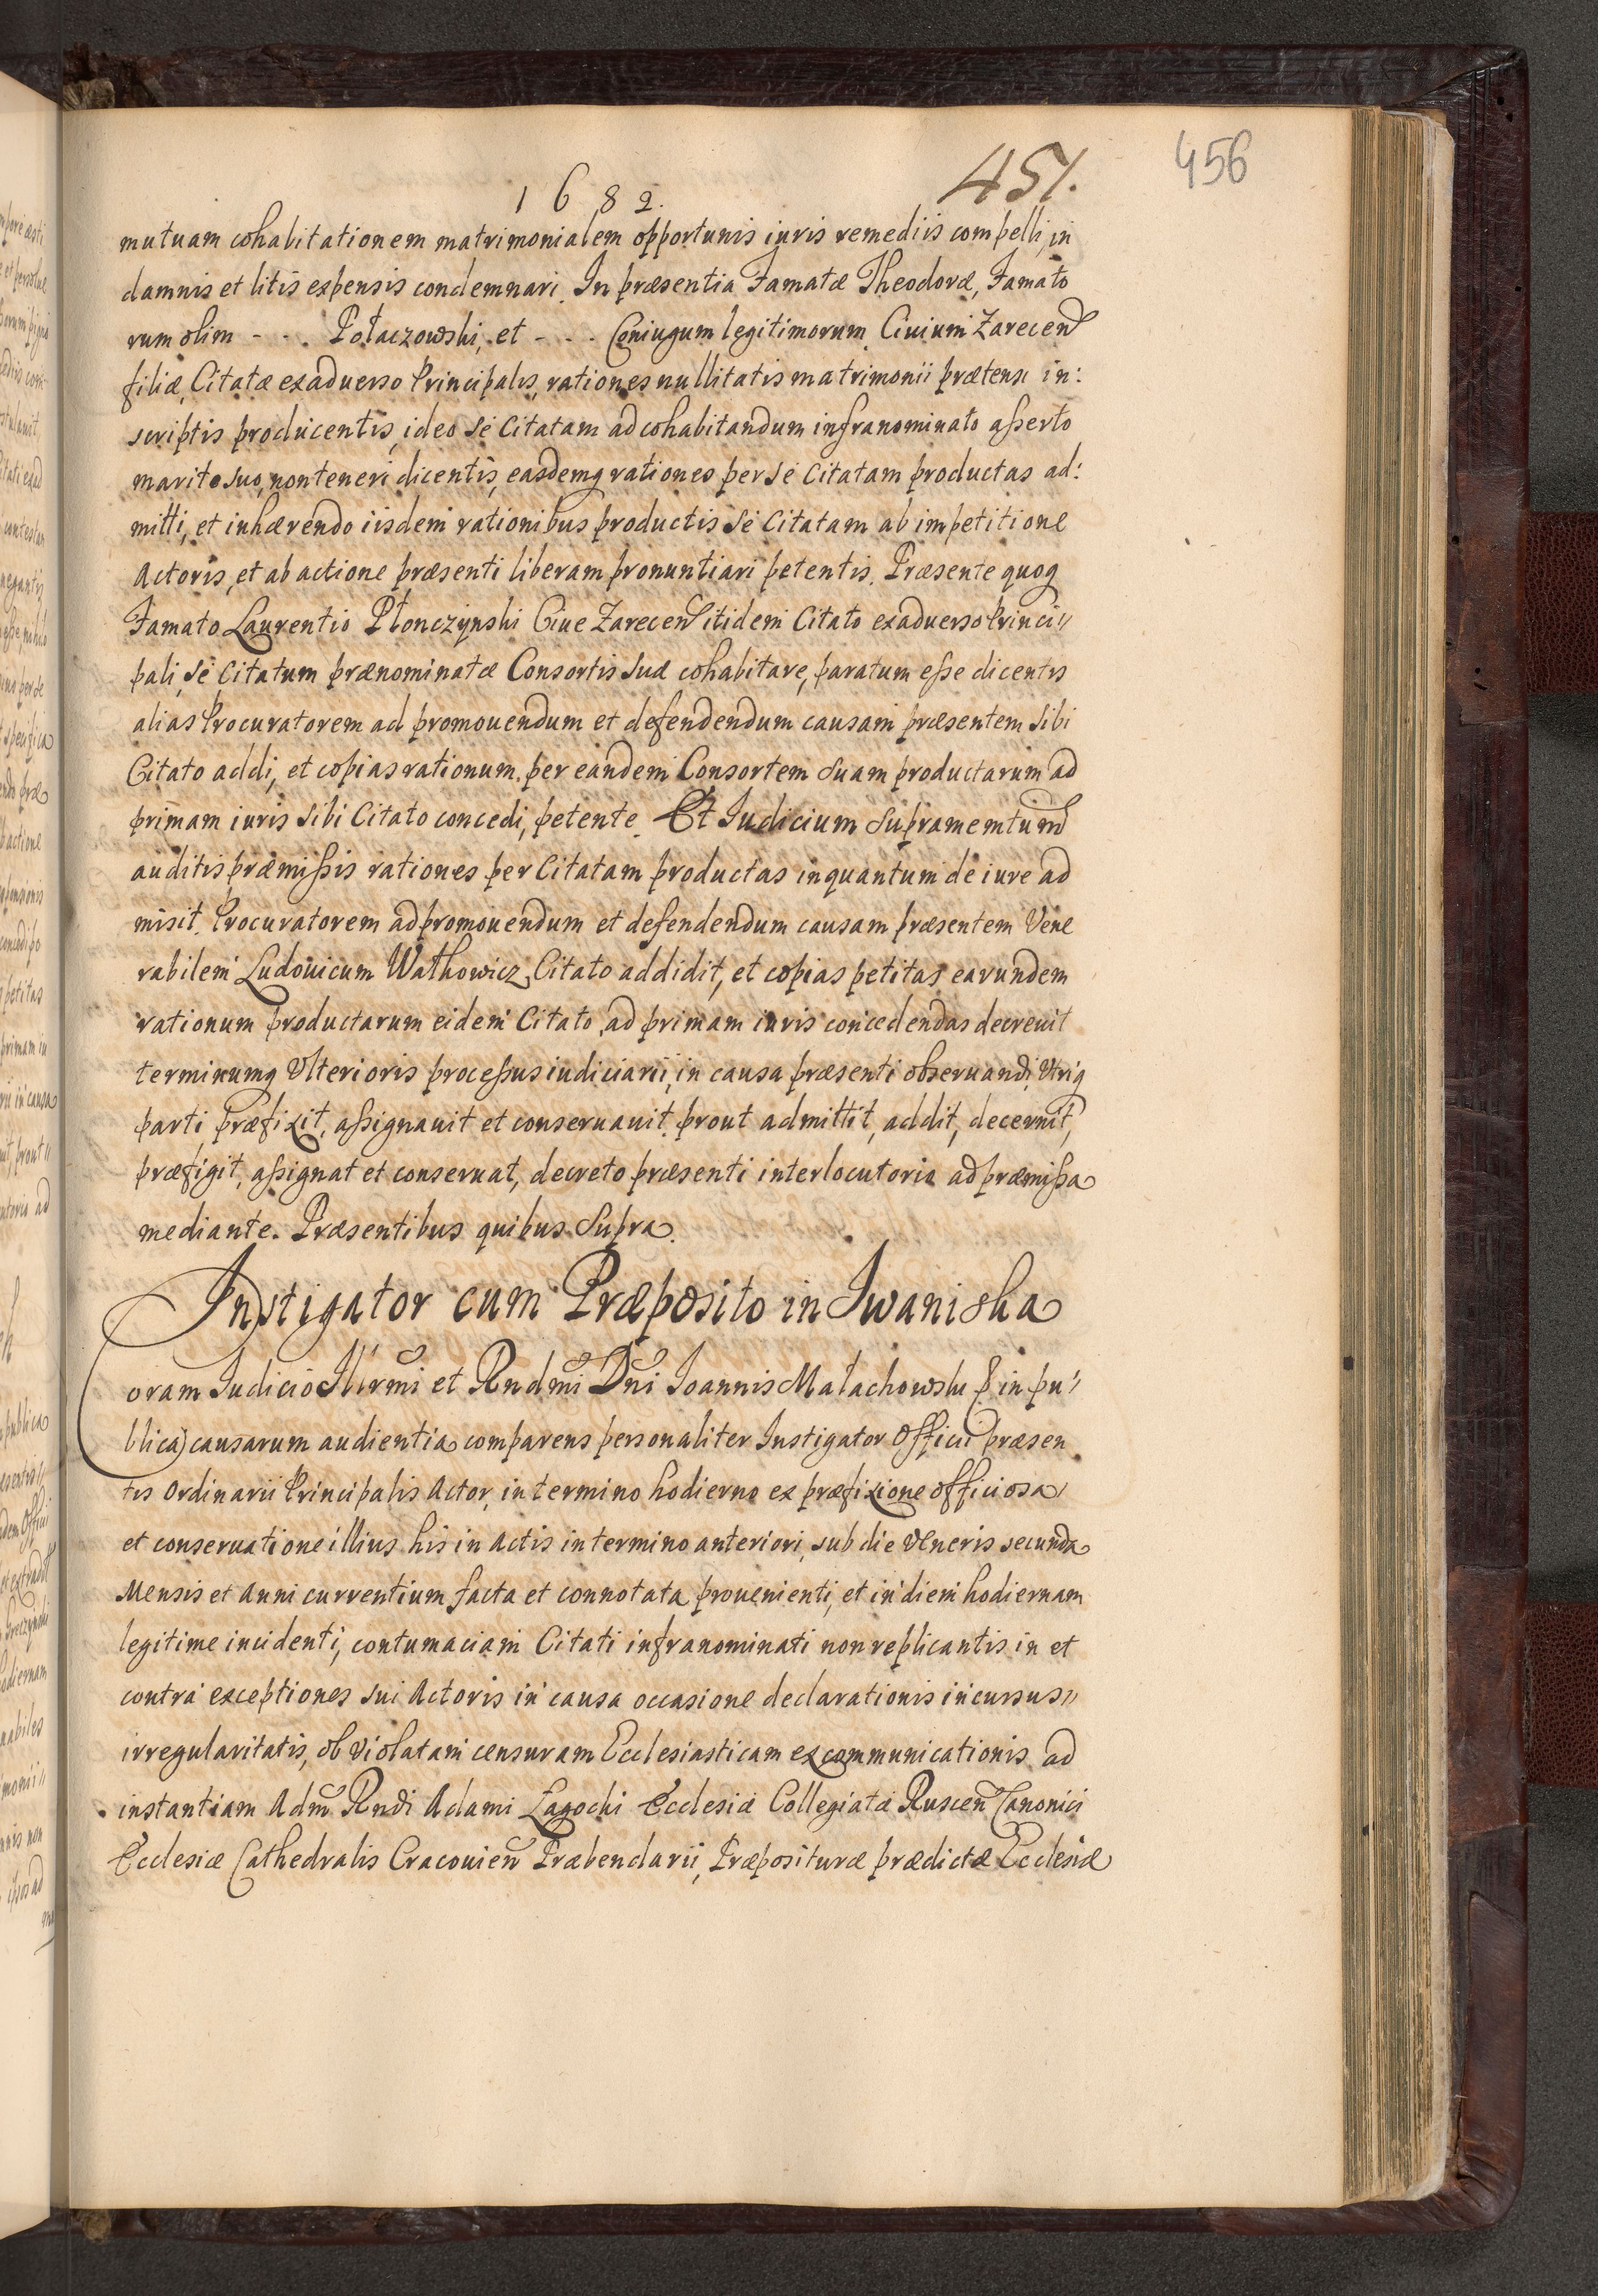 1682.
451.
456
mutuam cohabitationem matrimonialem opportunis iuris remediis compelli, in
damnis et litis expensis condemnari. In præsentia Famatæ Theodoræ, Famato
rum olim - - . Połaczowski, et - - . Coniugum legitimorum Ciuium Zarecen
filiæ, Citatæ exaduerso Principalis, rationes nullitatis matrimonii prætensi in:
scriptis producentis, ideo se Citatam ad cohabitandum infranominato asserto
marito suo, non teneri dicentis, easdemq rationes per se Citatam productas ad:
mitti, et inhærendo iisdem rationibus productis se Citatam ab impetitione
Actoris, et ab actione præsenti liberam pronuntiari petentis. Præsente quoq
Famato Laurentio Płonczynski Ciue Zarecen itidem Citato exaduerso Princi"
pali, se Citatum prænominatæ Consortis suæ cohabitare, paratum esse dicentis
alias Procuratorem ad promouendum et defendendum causam præsentem sibi
Citato addi, et copias rationum per eandem Consortem suam productarum ad
primam iuris sibi Citato concedi, petente. Et Iudicium supramemtum
auditis præmissis rationes per Citatam productas inquantum de iure ad
misit. Procuratorem ad promouendum et defendendum causam præsentem Vene
rabilem Ludouicum Wathowicz Citato addidit, et copias petitas earundem
rationum productarum eidem Citato ad primam iuris concedendas decreuit
terminumq Vlterioris processus iudiciarii, in causa præsenti obseruandi, Vtriq
parti præfixit, assignauit et conseruauit, prout admittit, addit, decernit,
præfigit, assignat et conseruat, decreto præsenti interlocutorio ad præmissa
mediante. Præsentibus quibus supra.
Instigator cum Præposito in Iwaniska
Coram Iudicio Illrmi et Rndmi Dni Ioannis Małachowski & in pu"
blica causarum audientia comparens personaliter Instigator Officii præsen
tis Ordinarii Principalis Actor, in termino hodierno ex præfixione officiosa
et conseruatione illius his in Actis in termino anteriori, sub die Veneris secunda
Mensis et Anni currentium facta et connotata prouenienti, et in diem hodiernam
legitime incidenti, contumaciam Citati infranominati non replicantis in et
contra exceptiones sui Actoris in causa occasione declarationis incursus"
irregularitatis, ob violatam censuram Ecclesiasticam excommunicationis ad
instantiam Adm Rndi Adami Zagocki Ecclesiæ Collegiatæ Ruscen Canonici
Ecclesiæ Cathedralis Cracouien Præbendarii, Præposituræ prædictæ Ecclesiæ